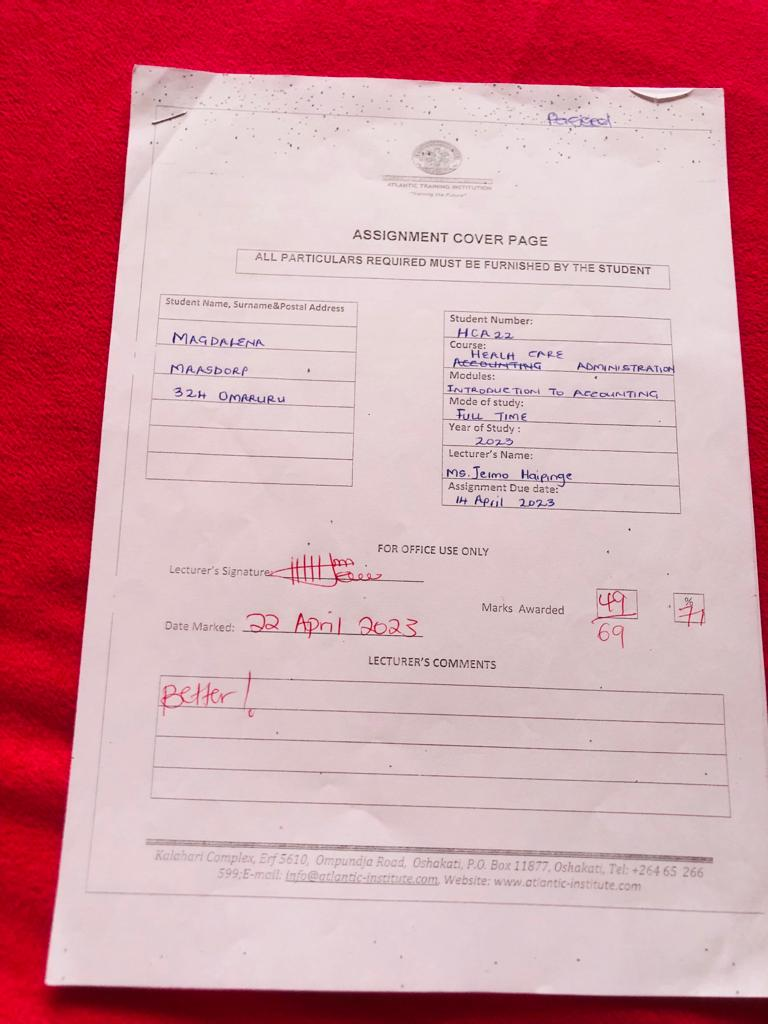 ATLANTIC TRAINING INSTITUTION
"Training the Future"
ASSIGNMENT COVER PAGE
ALL PARTICULARS REQUIRED MUST BE FURNISHED BY THE STUDENT
Student Name, Surname&Postal Address
MAGDALENA
MAASDORP
324 OMARURU
Student Number:
HCA22
Course:
HEALH CARE
ACCOUNTING ADMINISTRATION
Modules:
INTRODUCTION TO ACCOUNTING
Mode of study:
FULL TIME
Year of Study :
2023
Lecturer's Name:
Ms. Haipinge
Assignment Due date:
14 April 2023
FOR OFFICE USE ONLY
Lecturer's Signature
Marks Awarded 49 %
69 71
Date Marked: 22 April 2023
LECTURER'S COMMENTS
Better!
Kalahari Complex, Erf 5610, Ompundja Road, Oshakati, P.O. Box 11877, Oshakati, Tel: +264 65 266
599;E-mail: info@atlantic-institute.com, Website: www.atlantic-institute.com